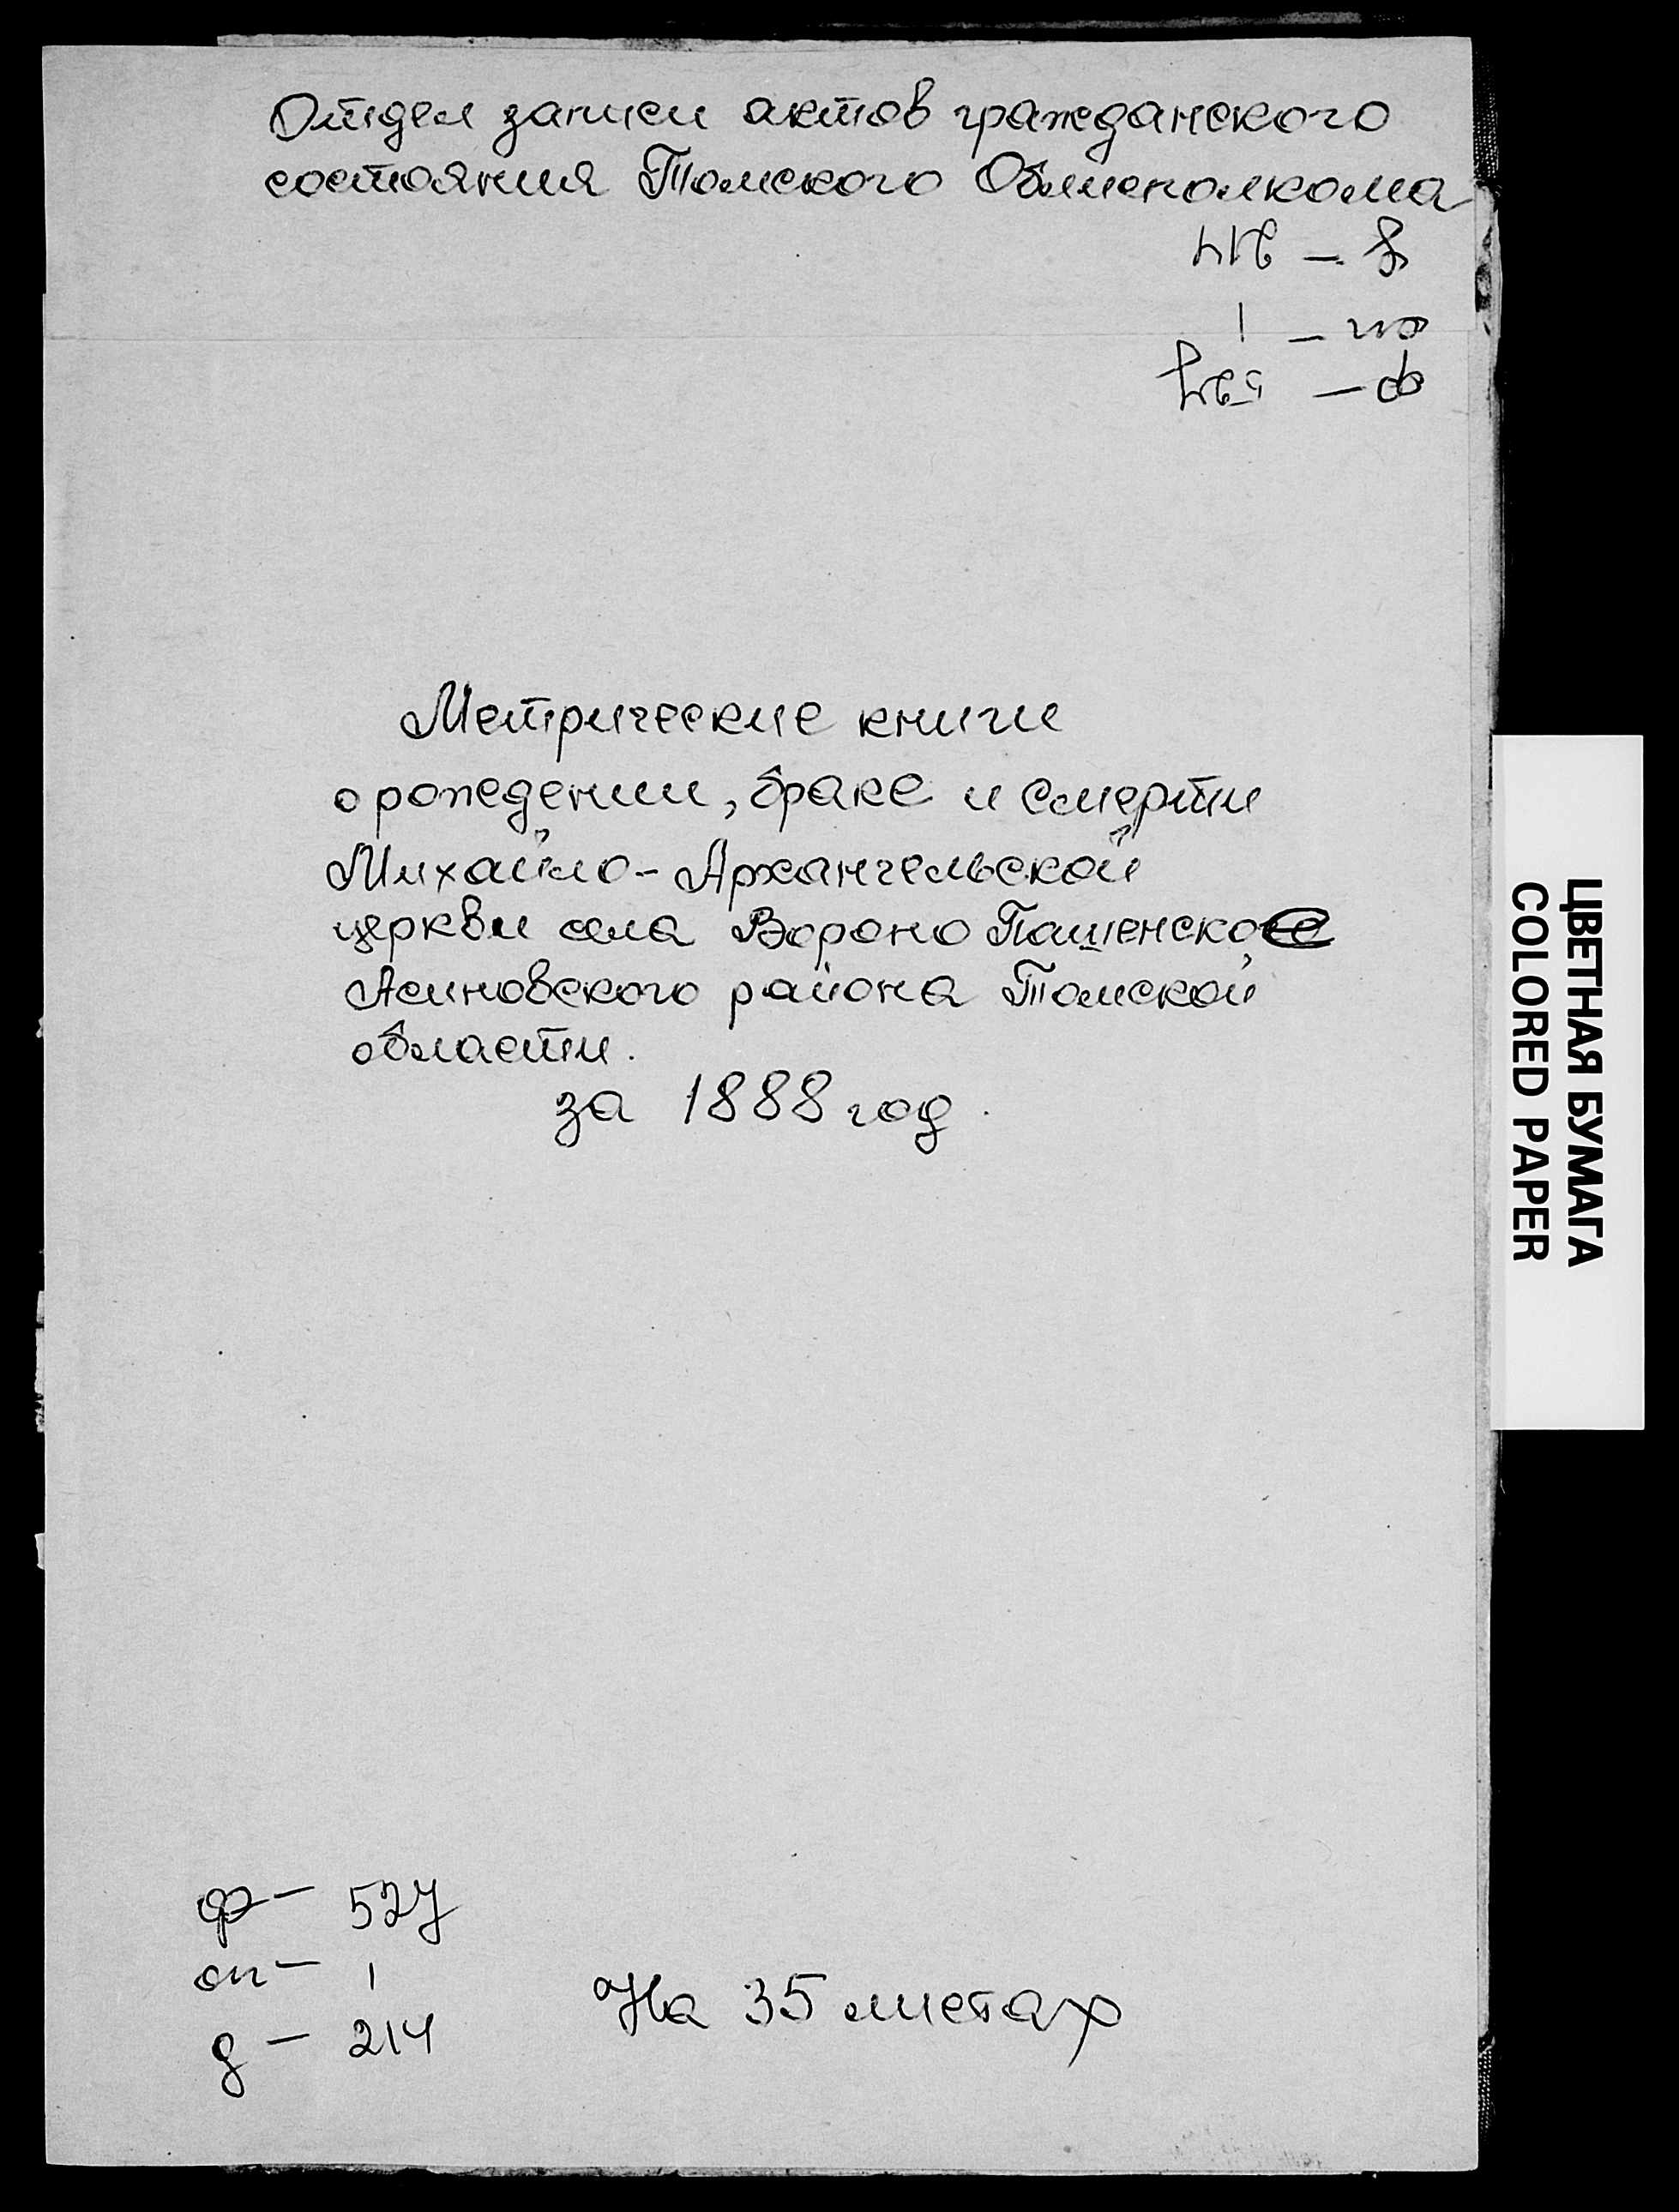 Отдел записи актов гражданского
состояния Томского Облисполкома
д - 214
оп - 1
ф - 527
Метрические книги
о рождении, браке и смерти
Михайло-Архангельской
церкви села Вороно Пашенское
Асиновского района Томской
области.
за 1888 год.
ф - 527
оп - 1
д - 214
На 35 листах
ЦВЕТНАЯ БУМАГА
COLORED PAPER